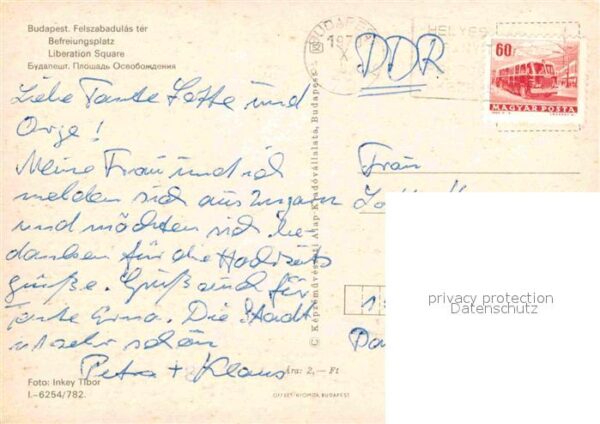 Budapest. Felszabadulás tér
Befreiungsplatz
Liberation Square
Будапешт. Площадь Освобождения
Liebe Tante Lotte und
Meine Frau und ich
melden sich aus Ungarn
und möchten sich be-
danken für die Hochzeits
grüße. Gruß auch für
Tante Erna. Die Stadt
ist sehr schön
Petra + Klaus
Foto: Inkey Tibor
I.-6254/782.
© Képzőművészeti Alap Kiadóvállalata, Budapest
Ára: 2,— Ft
OFFSET NYOMDA BUDAPEST
BUDAPEST
197
HELYES
60f
MAGYAR POSTA
DDR
Frau
privacy protection
Datenschutz